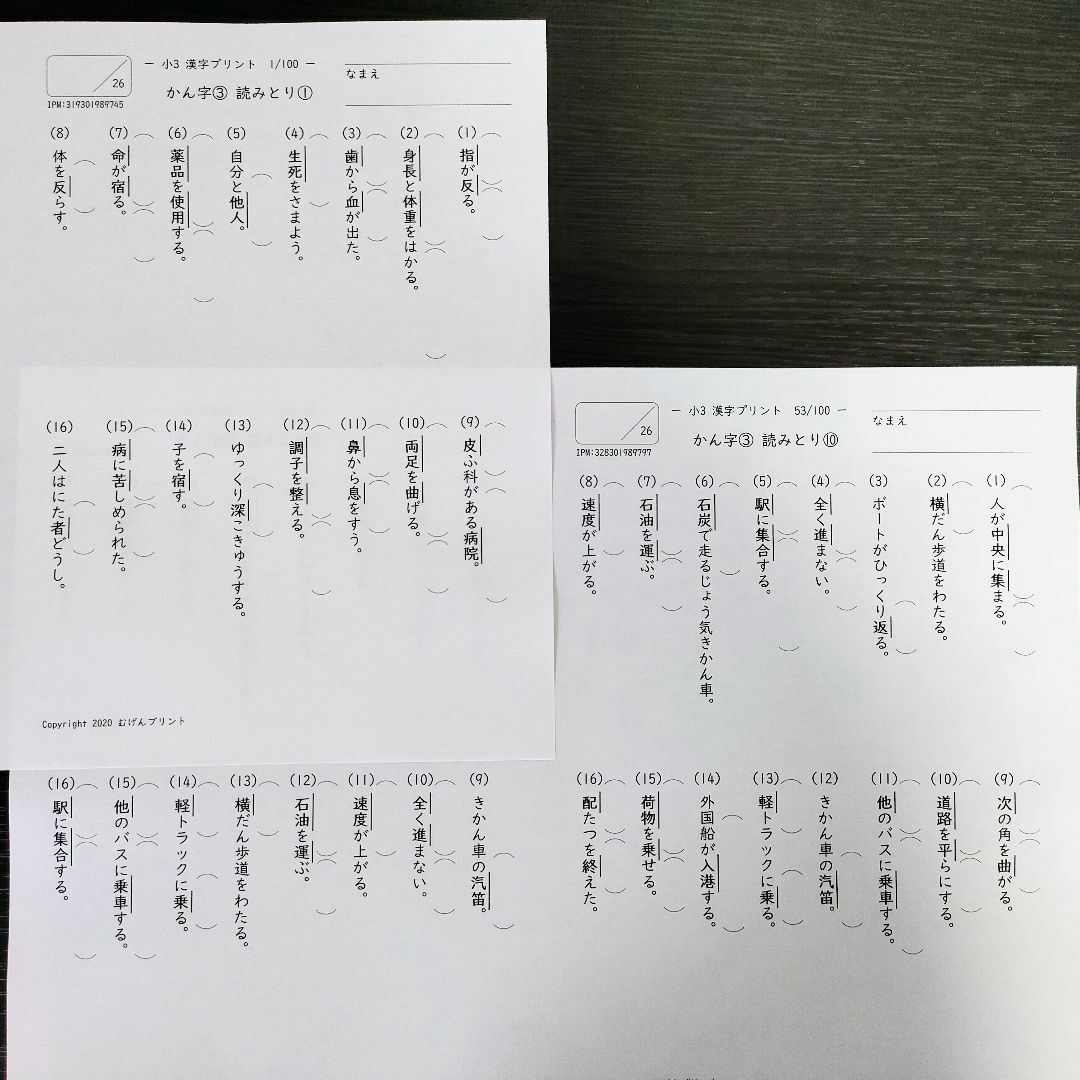 ― 小3 漢字プリント 1/100 ―
なまえ
かん字③ 読みとり①
/26
IPM:319301989745
(1) 指が反る。
(2) 身長と体重をはかる。
(3) 歯から血が出た。
(4) 生死をさまよう。
(5) 自分と他人。
(6) 薬品を使用する。
(7) 命が宿る。
(8) 体を反らす。
(9) 皮ふ科がある病院。
(10) 両足を曲げる。
(11) 鼻から息をすう。
(12) 調子を整える。
(13) ゆっくり深こきゅうする。
(14) 子を宿す。
(15) 病に苦しめられた。
(16) 二人はにた者どうし。
Copyright 2020 むげんプリント
― 小3 漢字プリント 53/100 ―
なまえ
かん字③ 読みとり⑩
/26
IPM:328301989797
(1) 人が中央に集まる。
(2) 横だん歩道をわたる。
(3) ボートがひっくり返る。
(4) 全く進まない。
(5) 駅に集合する。
(6) 石炭で走るじょう気きかん車。
(7) 石油を運ぶ。
(8) 速度が上がる。
(9) 次の角を曲がる。
(10) 道路を平らにする。
(11) 他のバスに乗車する。
(12) きかん車の汽笛。
(13) 軽トラックに乗る。
(14) 外国船が入港する。
(15) 荷物を乗せる。
(16) 配たつを終えた。
(9) きかん車の汽笛。
(10) 全く進まない。
(11) 速度が上がる。
(12) 石油を運ぶ。
(13) 横だん歩道をわたる。
(14) 軽トラックに乗る。
(15) 他のバスに乗車する。
(16) 駅に集合する。